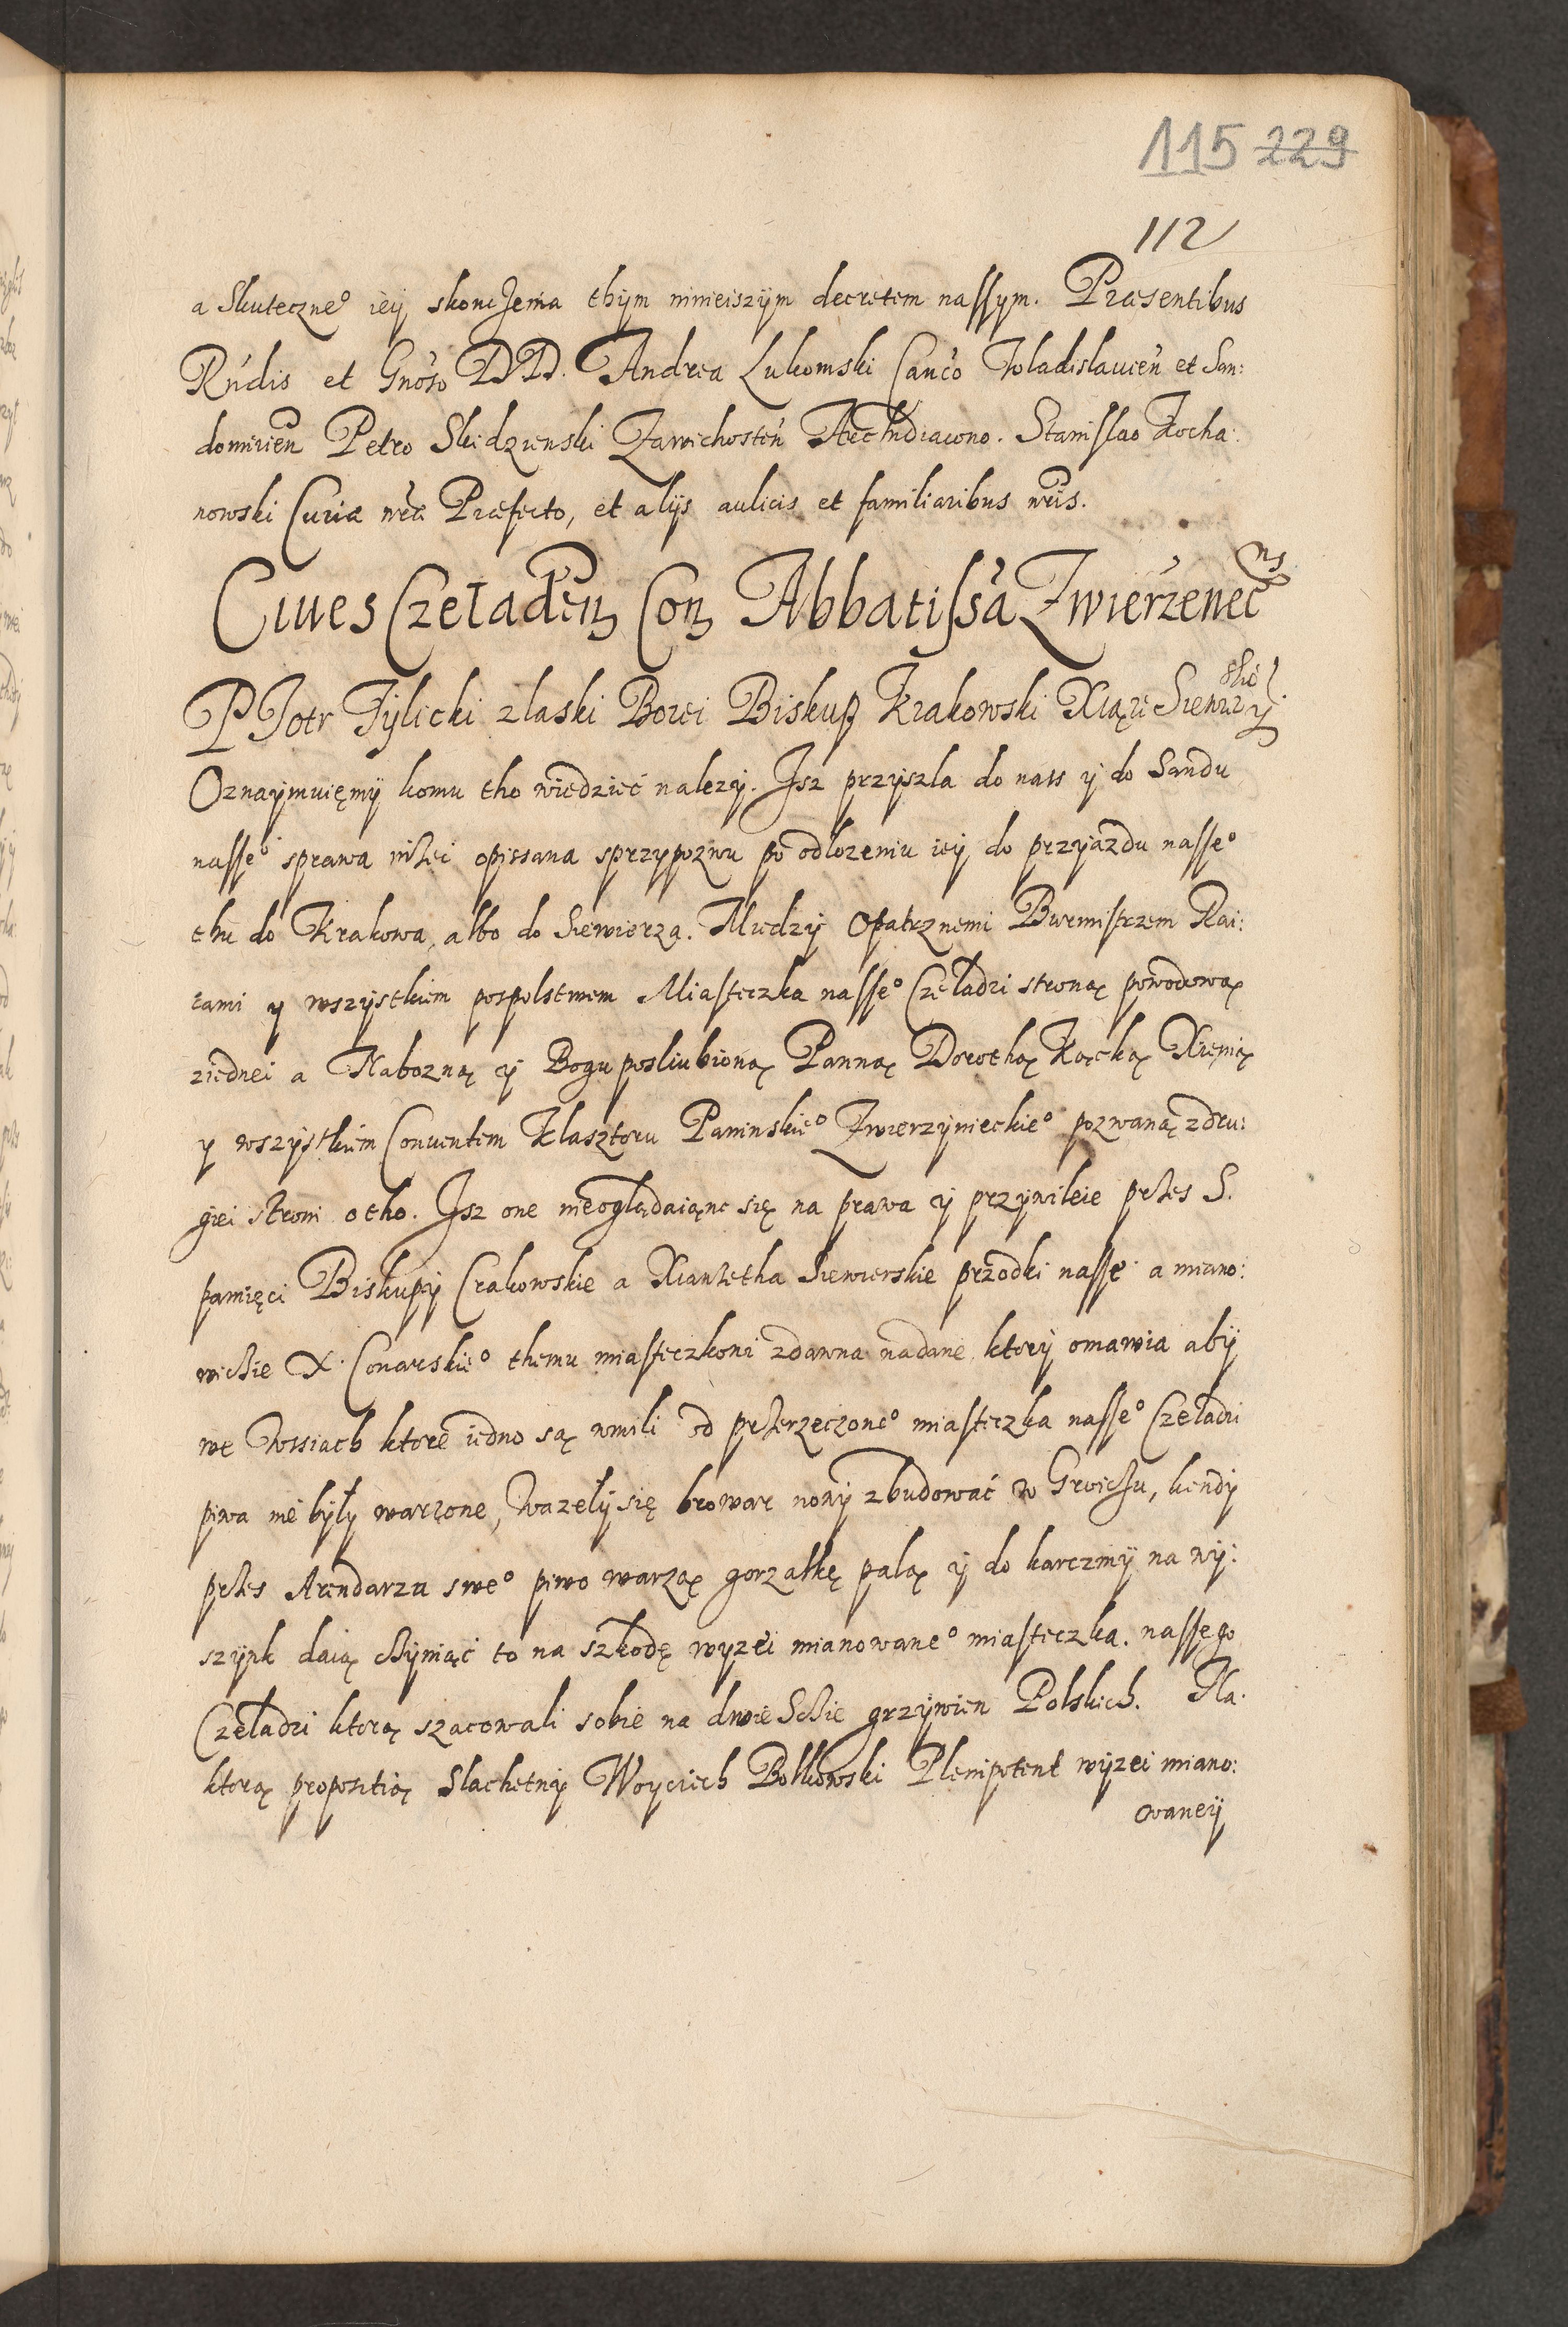 115 229
112
a Skuteczne° iey skonczenia thym ninieiszym decretem nassym. Præsentibus
Rndis et Gnoso DD. Andrea Lukomski Canco Wladislauien et San:
domirien Petro Skidzienski Zawichosten Archidiacono. Stanislao Kocha:
nowski Curiæ nræ Præfecto, et alijs aulicis et familiaribus nris.
Ciues Czeladien Con Abbatissa Zwierzenec ns
PIotr Tylicki z laski Bozei Biskup Krakowski Xiąże Siewierskie y.
Oznaymuięmy komu tho wiedzieć nalezy. Isz przyszla do nass y do Sandu
nasse° sprawa niżei opissana sprzypozwu po odlozeniu iey do przyiazdu nasse°
thu do Krakowa, albo do Siewierza. Miedzy Opatrznemi Burmistrzem Rai:
cami y wszystkiem pospolstwem Miasteczka nasse° Czeladzi stroną powodową
ziednei a Nabozną y Bogu posliubioną Panną Dorothą Kącką Xienią
y wszystkiem Conuentem Klasztoru Paninskie° Zwierzynieckie° pozwaną zdru:
giei stroni otho. Isz one nieoglądaiąnc się na prawa y przywileie przes S.
pamięci Biskupy Crakowskie a Xianzetha Siewierskie przodki nasse a miano:
wicie X. Conarskie° themu miasteczkoni zdawna nadane ktory omawia aby
we Wssiach ktore iedno są wmili od przerzeczone° miasteczka nasse° Czeladzi
piwa nie były warzone, Wazeły się browar nowy zbudować w Groicu, kendy
przes Arendarza swe° piwo warzą gorzałkę palą y do karczmy na wy:
szynk daią czyniąć to na szkodę wyzei mianowane° miasteczka. nassego
Czeladzi ktorą szacowali sobie na dwie Scie grzywien Polskich. Na
ktorą propositią Slachetny Woyciech Bolkowski Plenipotent wyzei miano:
owaney